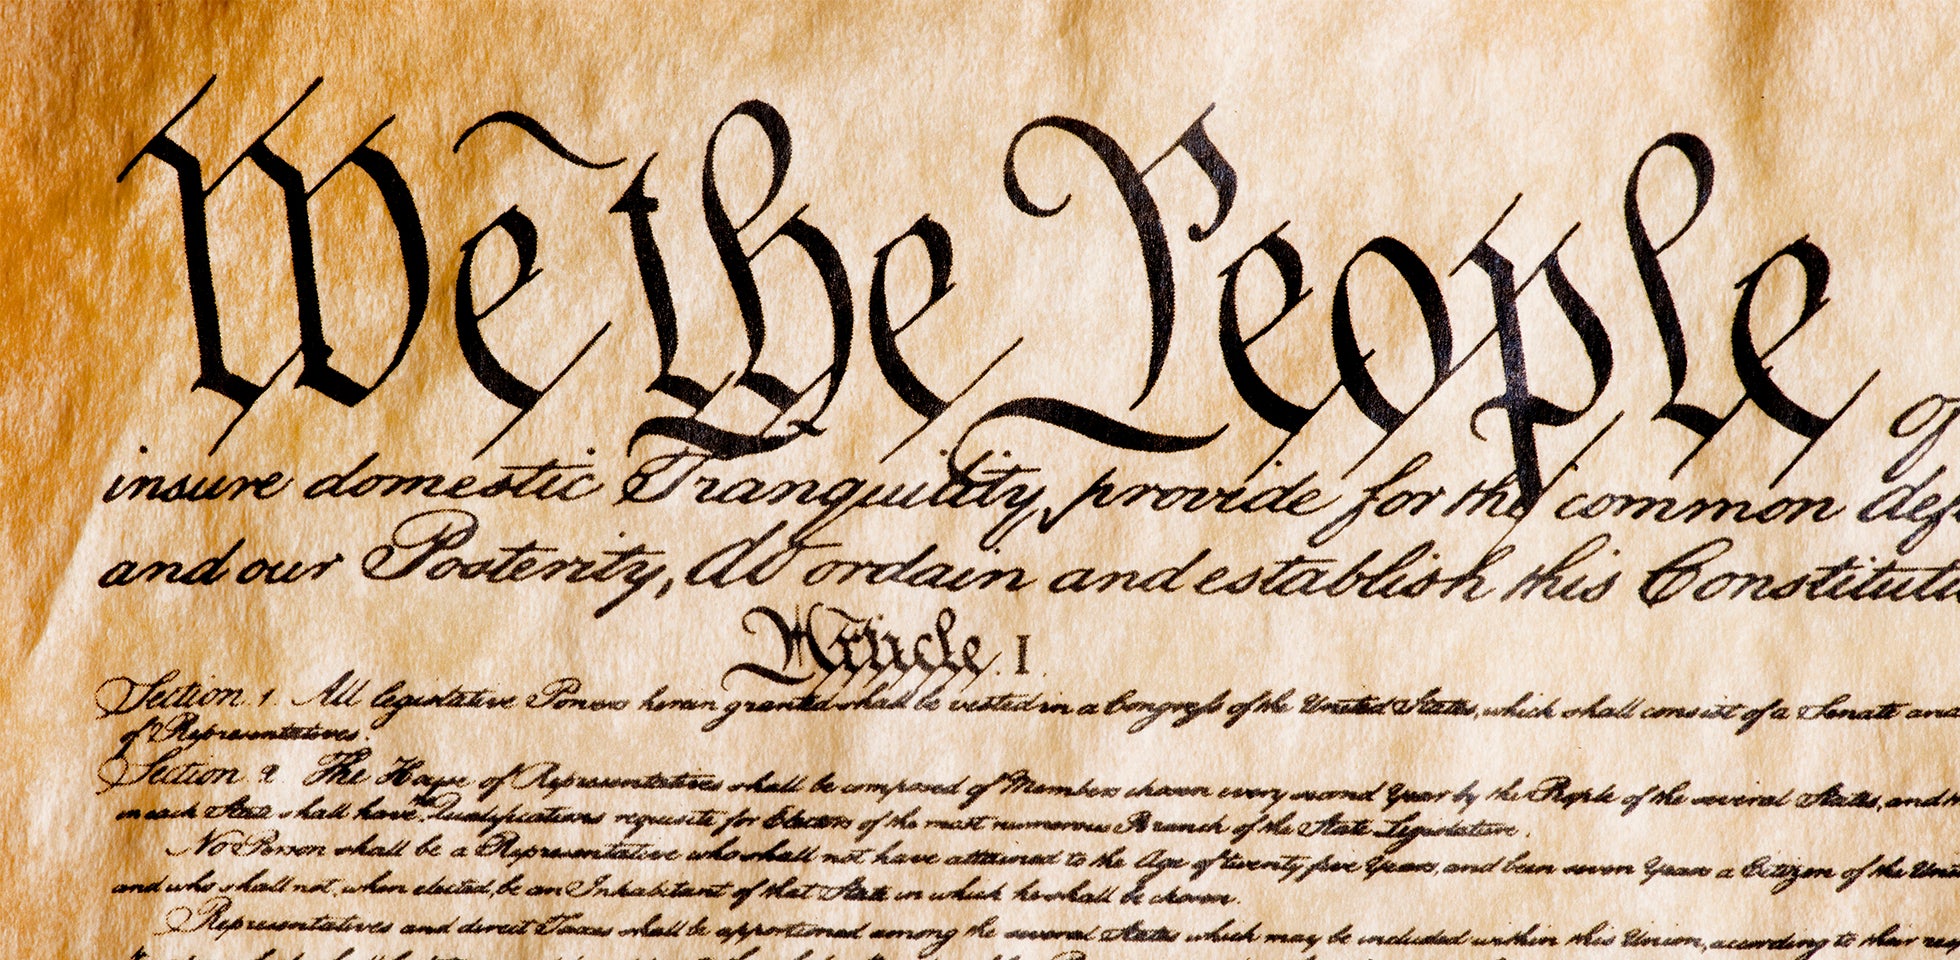 We the People of
insure domestic Tranquility, provide for the common def
and our Posterity, do ordain and establish this Constituti
Article. I
Section. 1. All legislative Powers herein granted shall be vested in a Congress of the United States, which shall consist of a Senate and
of Representatives.
Section. 2. The House of Representatives shall be composed of Members chosen every second Year by the People of the several States, and
in each State shall have the Qualifications requisite for Electors of the most numerous Branch of the State Legislature.
No Person shall be a Representative who shall not have attained to the Age of twenty five Years, and been seven Years a Citizen of the Unit
and who shall not, when elected, be an Inhabitant of that State in which he shall be chosen.
Representatives and direct Taxes shall be apportioned among the several States which may be included within this Union, according to their resp